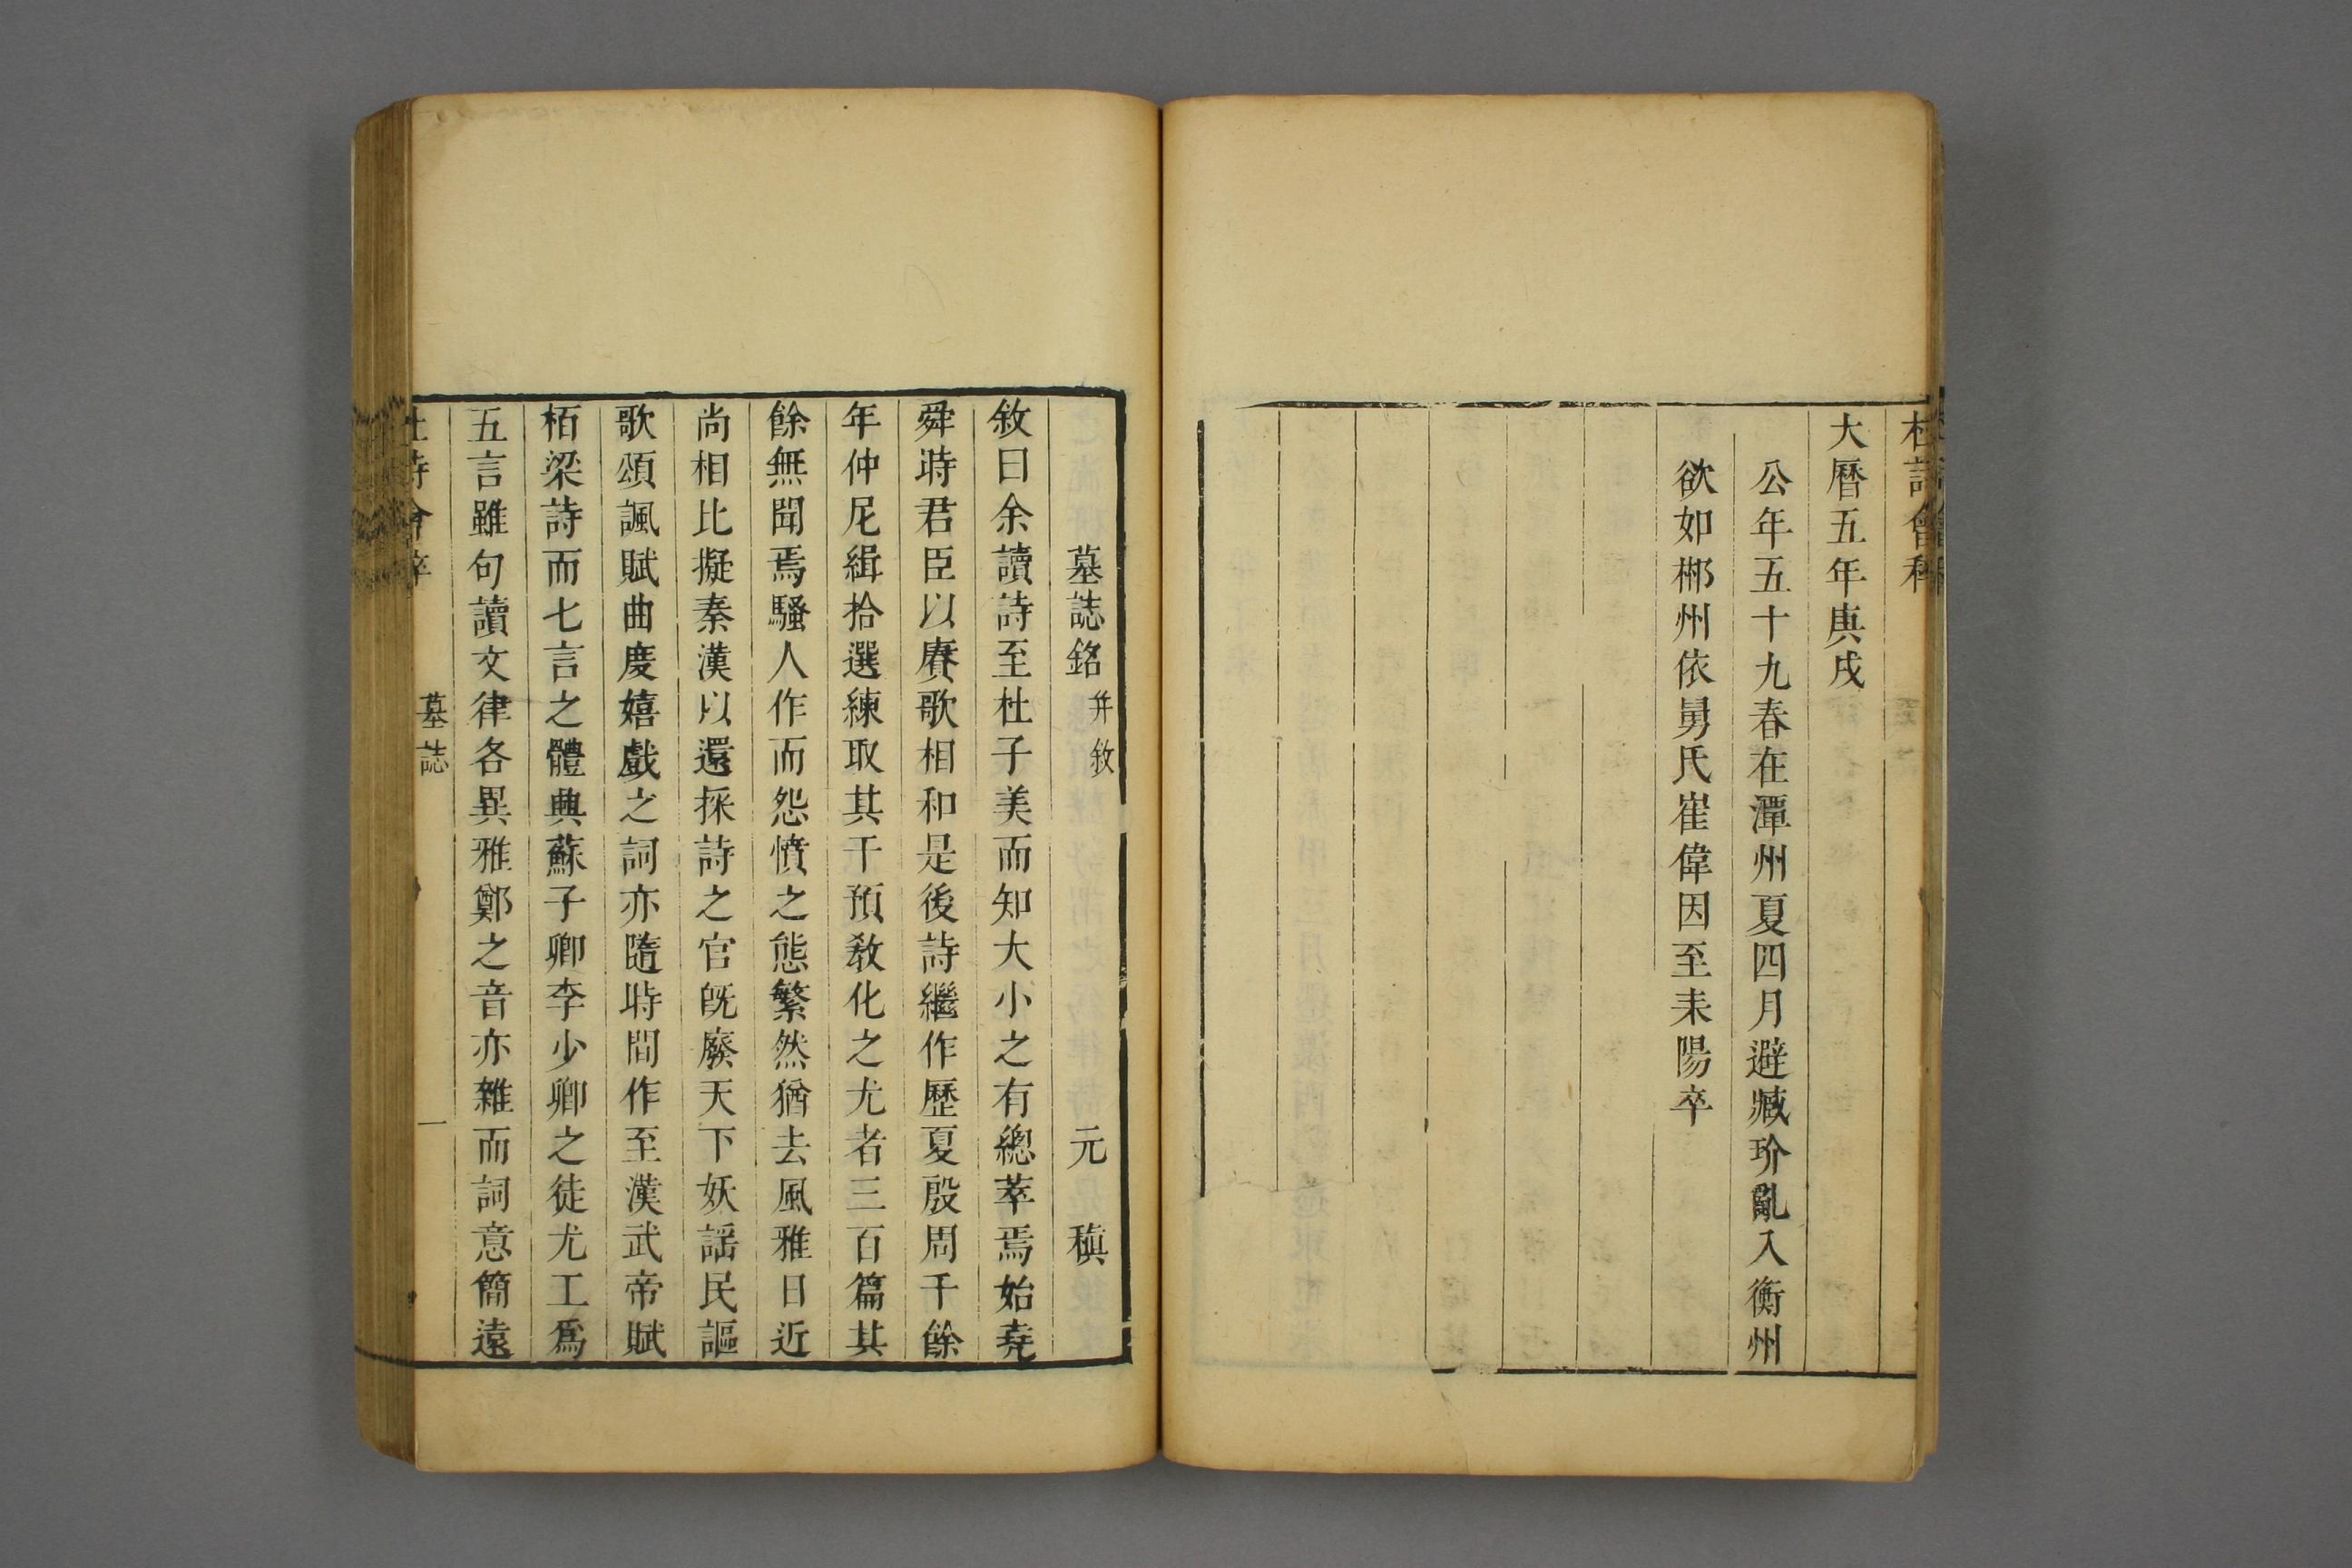 杜詩會稡
大曆五年庚戌
公年五十九春在潭州夏四月避臧玠亂入衡州
欲如郴州依舅氏崔偉因至耒陽卒
墓誌銘 并敘 元 稹
敘曰余讀詩至杜子美而知大小之有總萃焉始堯
舜時君臣以賡歌相和是後詩繼作歷夏殷周千餘
年仲尼緝拾選練取其干預教化之尤者三百篇其
餘無聞焉騷人作而怨憤之態繁然猶去風雅日近
尚相比擬秦漢以還採詩之官旣廢天下妖謡民謳
歌頌諷賦曲度嬉戲之詞亦隨時間作至漢武帝賦
栢梁詩而七言之體興蘇子卿李少卿之徒尤工爲
五言雖句讀文律各異雅鄭之音亦雜而詞意簡遠
杜詩會稡 墓誌 一